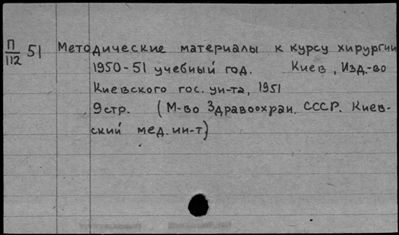 П
112 51 Методические материалы к курсу хирургии
1950-51 учебный год. Киев, Изд.-во
Киевского гос. ун-та, 1951
9стр. (М-во Здравоохран. СССР. Киев-
ский мед. ин-т)